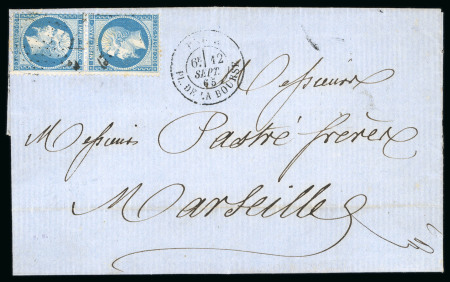 6E 12
SEPT.
65
PL. DE LA BOURSE
Messieurs
Messieurs Pastré frères
Marseille